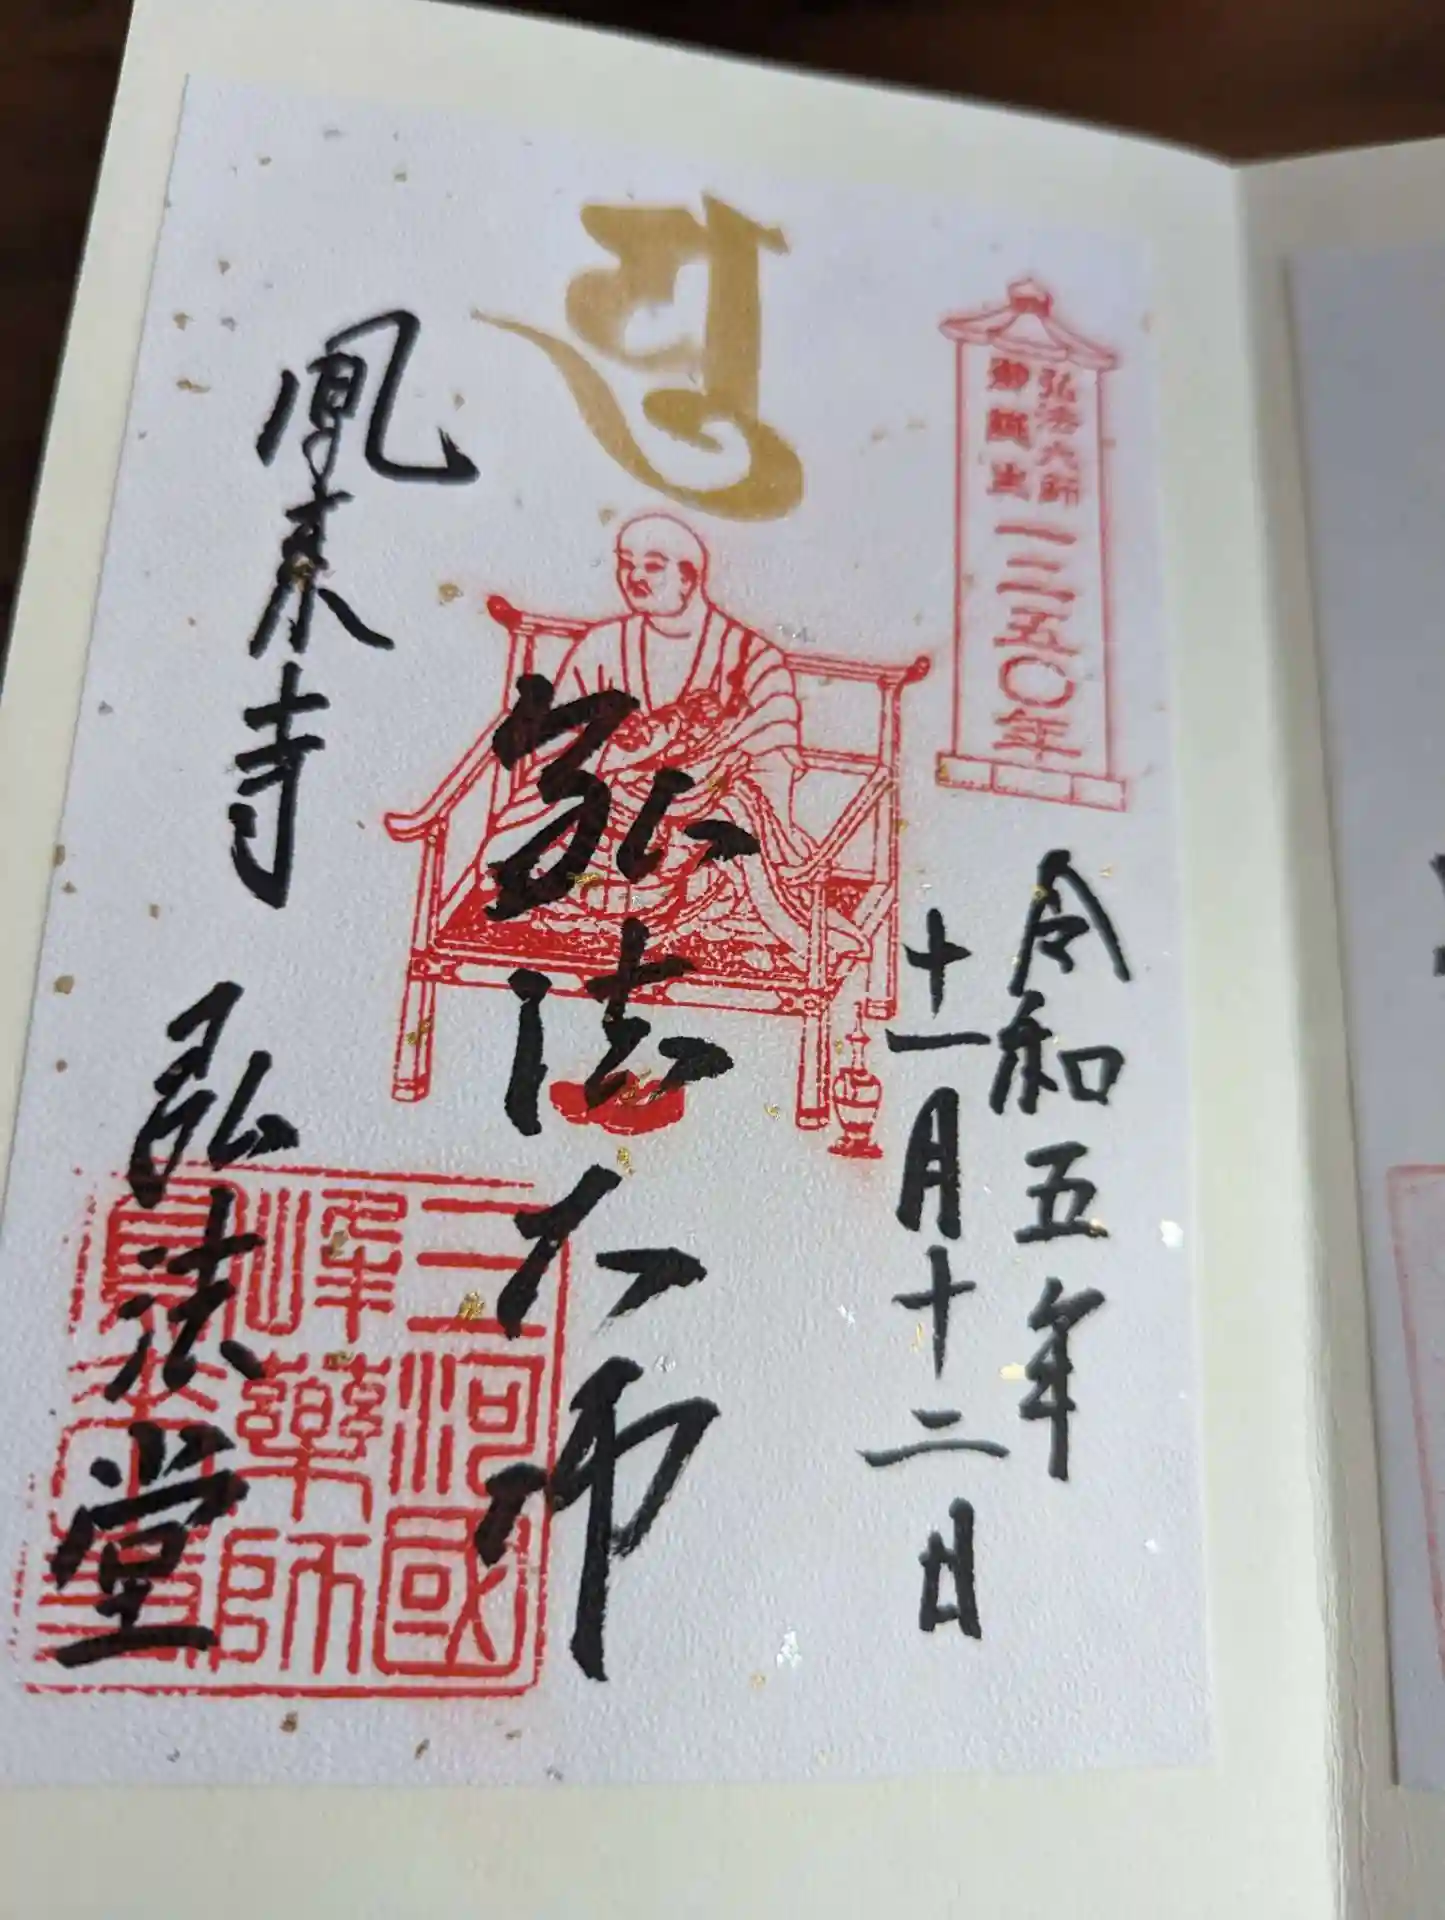 弘法大師
御誕生
一二五〇年
令和五年
十一月十二日
弘法大師
三河國
峰藥師
鳳来寺 弘法堂